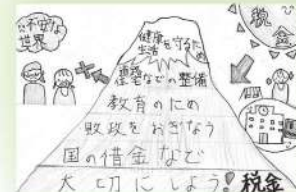 不安な
世界
税金
健康
生活を守るため
環境などの整備
教育のため
財政をおぎなう
国の借金など
大切にしよう 税金